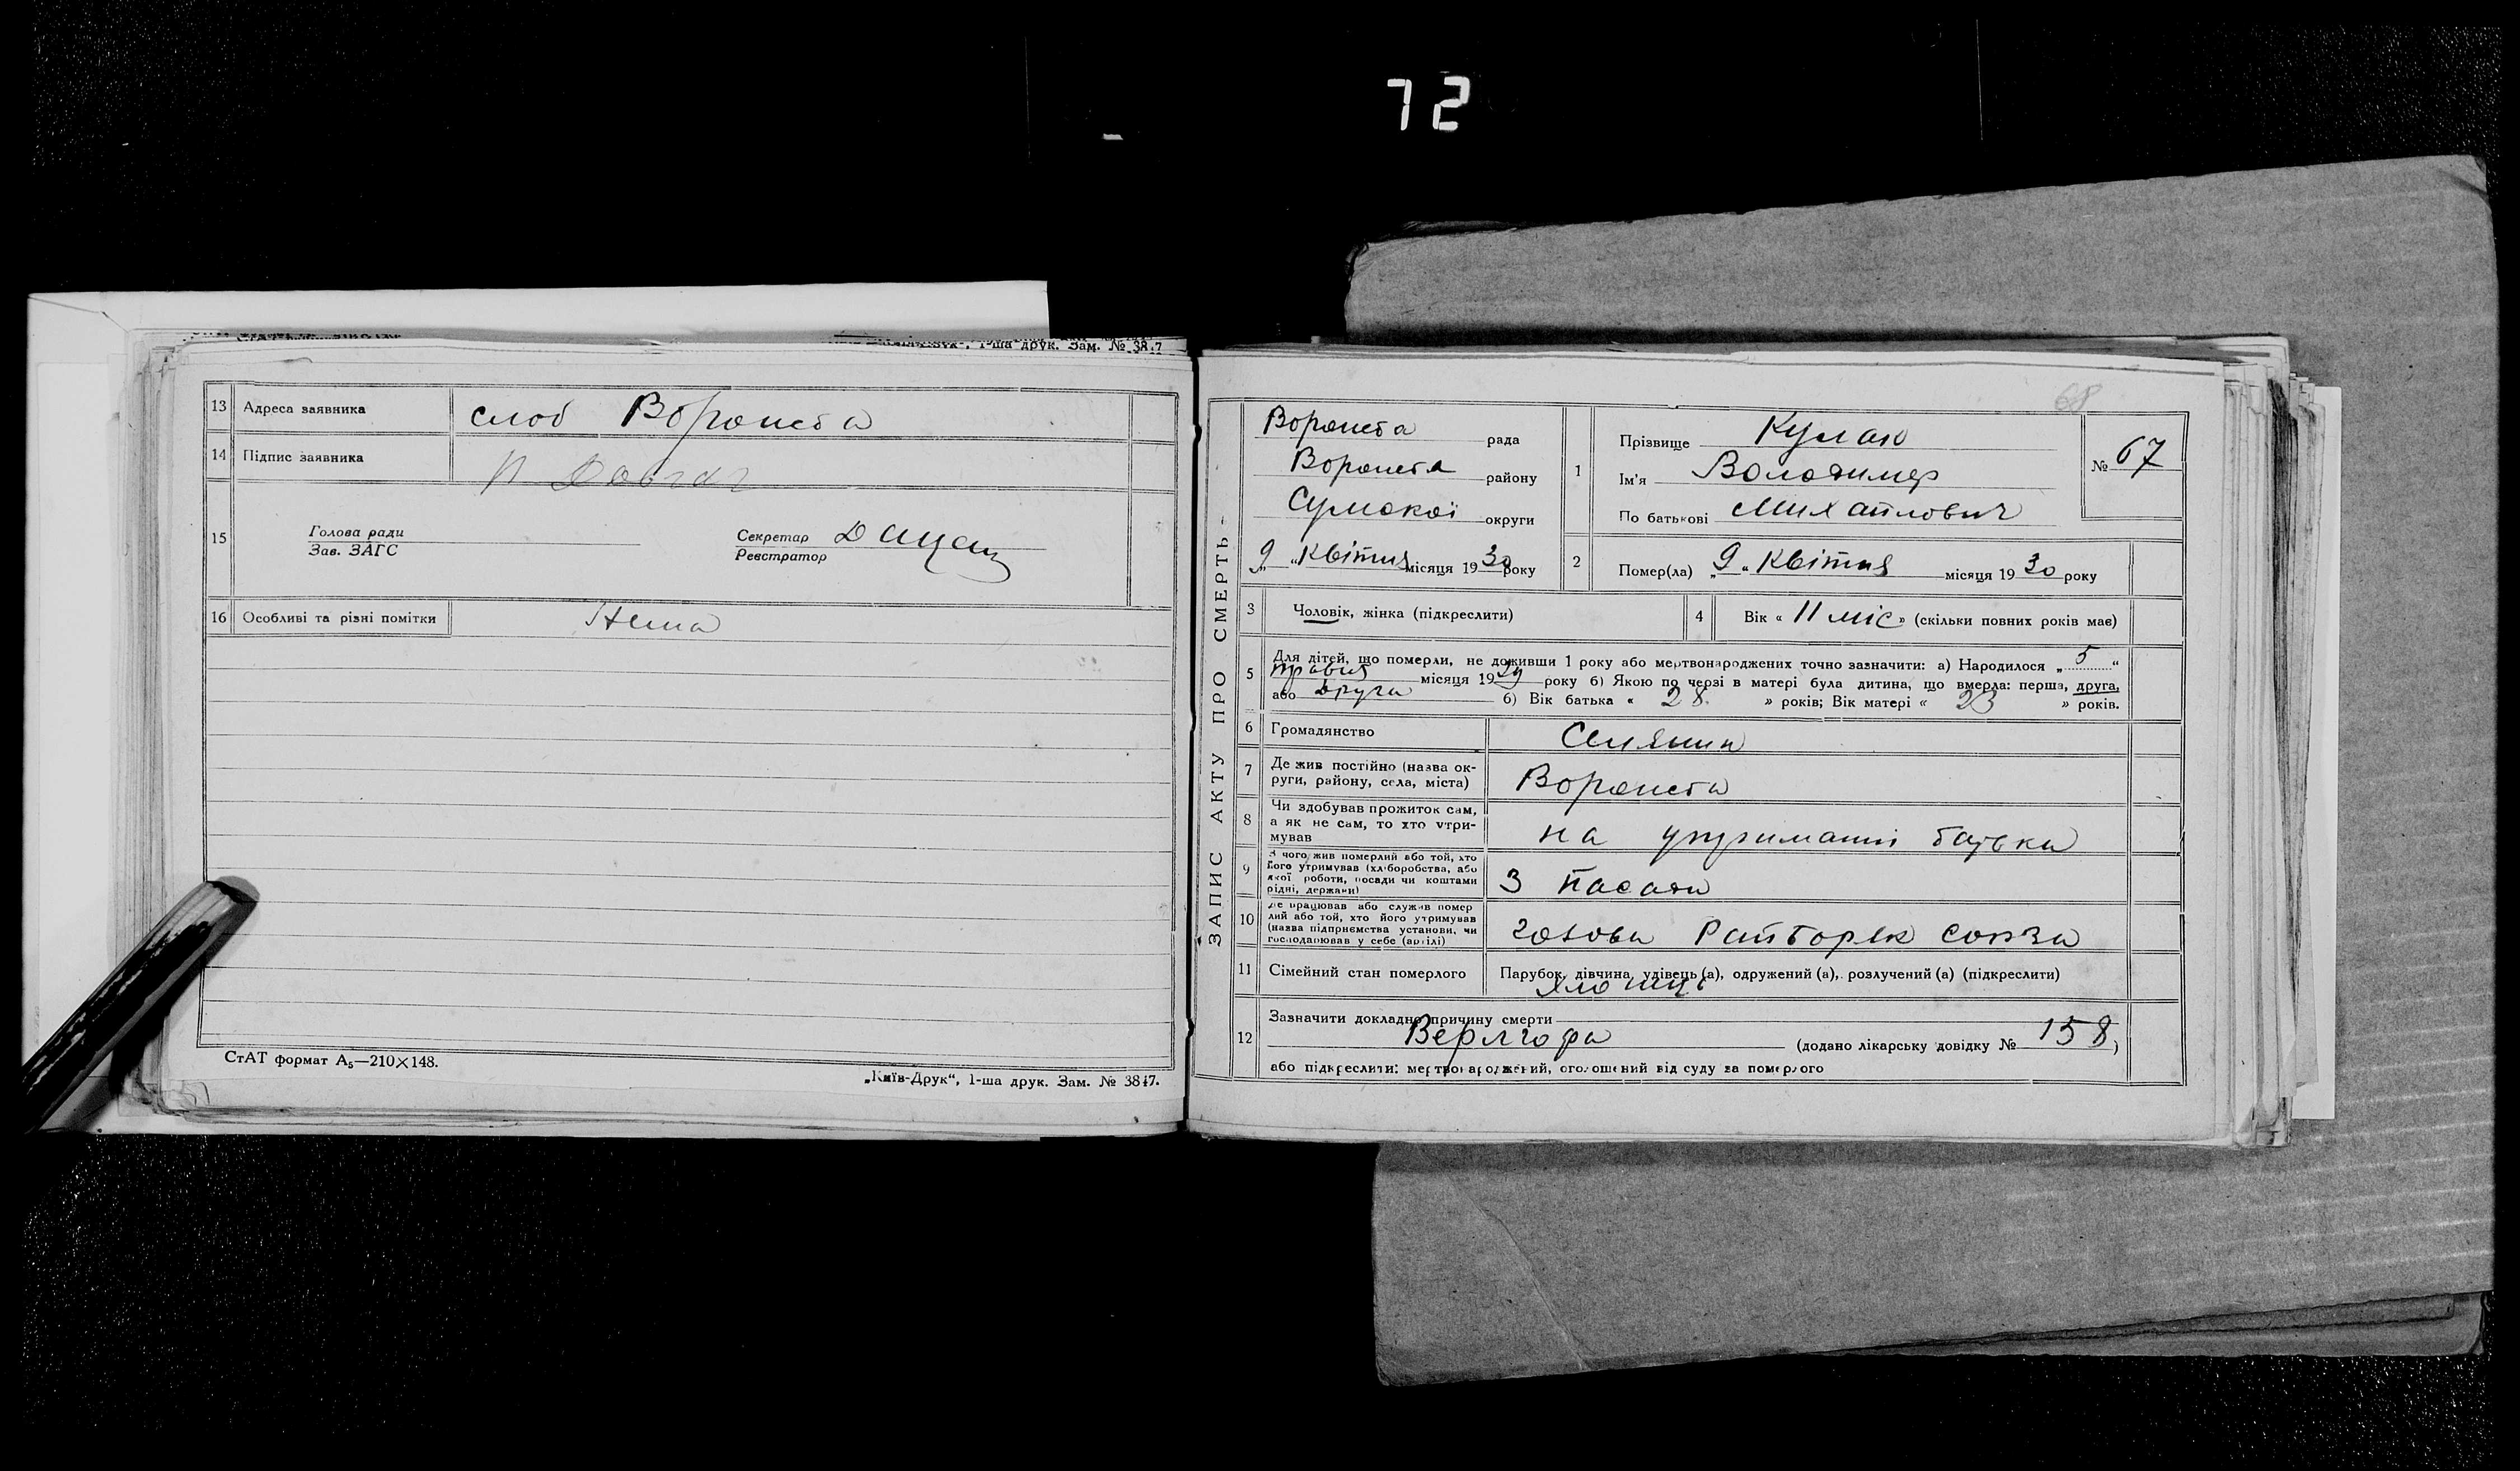 72
1-ша друк. Зам. № 3847
13 Адреса заявника слоб Вороніста
14 Підпис заявника
15 Голова ради
Зав. ЗАГС
Секретар
Реєстратор
16 Особливі та різні помітки Нема
СтАТ формат А₅—210×148.
„Київ-Друк“, 1-ша друк. Зам. № 3847.
68
ЗАПИС АКТУ ПРО СМЕРТЬ
Вороніста рада
Вороніста району
Сумскої округи
„9“ Квітня місяця 1930 року
1 Прізвище Кулак
Ім'я Володимер
По батькові Михайлович
№ 67
2 Помер(ла) „9“ Квітня місяця 1930 року
3 Чоловік, жінка (підкреслити)
4 Вік « 11 міс » (скільки повних років має)
5 Для дітей, що померли, не доживши 1 року або мертвонароджених точно зазначити: а) Народилося „5“
травня місяця 1929 року б) Якою по черзі в матері була дитина, що вмерла: перша, друга,
або друга б) Вік батька « 28 » років; Вік матері « 23 » років.
6 Громадянство Селянин
7 Де жив постійно (назва ок-
руги, району, села, міста) Вороніста
8 Чи здобував прожиток сам,
а як не сам, то хто утри-
мував на утриманні батька
9 З чого жив померлий або той, хто
його утримував (хліборобства, або
якої роботи, посади чи коштами
рідні, держави) З посади
10 Де працював або служив помер
лий або той, хто його утримував
(назва підприємства установи, чи
господарював у себе (артілі) голова Райборяк союза
11 Сімейний стан померлого Парубок, дівчина, удівець (а), одружений (а), розлучений (а) (підкреслити)
хлопець
12 Зазначити докладно причину смерти
(додано лікарську довідку № 158)
або підкреслити: мертвонароджений, оголошений від суду за померлого